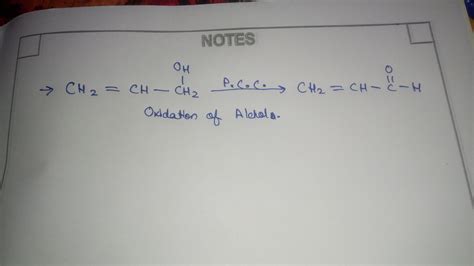 NOTES
OH
O
→ CH2 = CH - CH2 P.C.C. → CH2 = CH - C - H
Oxidation of Alchols.